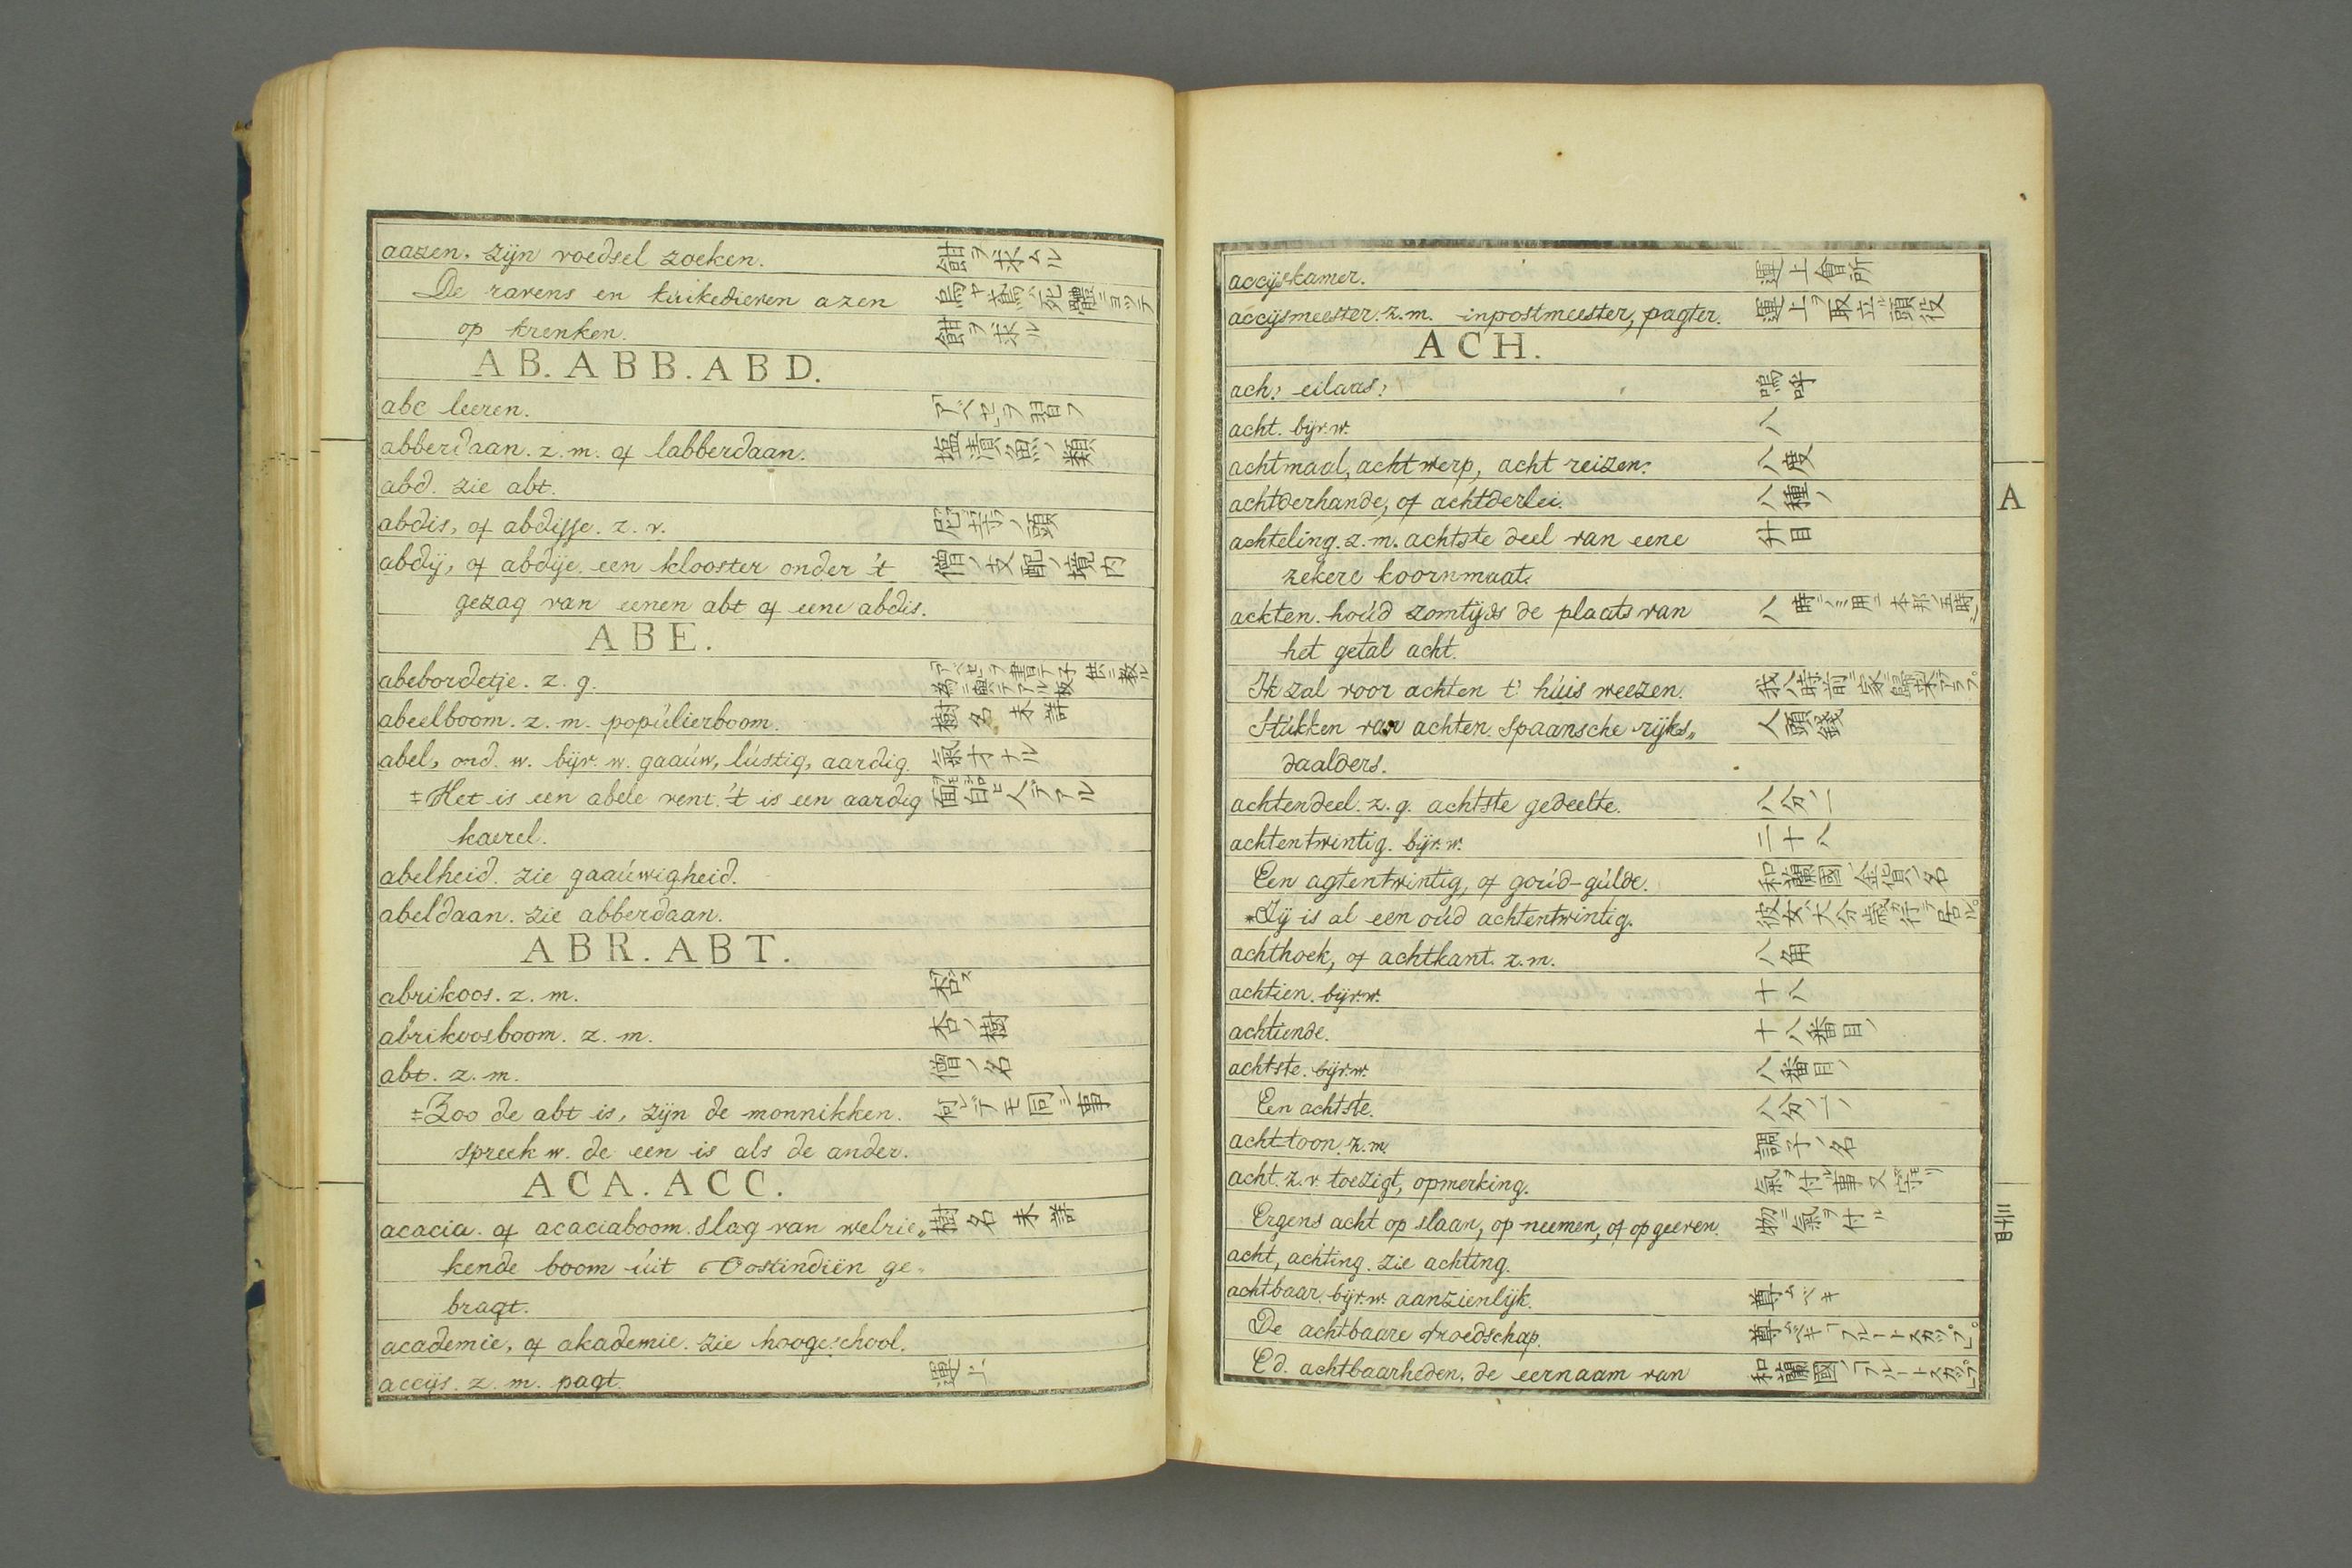 aazen. zijn voedsel zoeken. 餌ヲ求ムル
De ravens en kuikedieven azen 烏ヤ鳶ハ死體ニヨッテ
op krenken. 餌ヲ求ル
AB. ABB. ABD.
abc leeren. アベセヲ習フ
abberdaan. z. m. of labberdaan. 塩漬魚ノ類
abd. zie abt.
abdis, of abdisse. z. v. 尼寺ノ頭
abdij, of abdije. een klooster onder 't 僧ノ支配ノ境内
gezag van eenen abt of eene abdis.
ABE.
abebordetje. z. g. アベセヲ書テ子供ニ教ル
abeelboom. z. m. populierboom. 樹名未詳
abel, oud. w. bijv. w. gaauw, lustig, aardig. 氣オナル
‡ Het is een abele vent. 't is een aardig 面白ヒ人デアル
kaerel.
abelheid. zie gaauwigheid.
abeldaan. zie abberdaan.
ABR. ABT.
abrikoos. z. m. 杏
abrikoosboom. z. m. 杏ノ樹
abt. z. m. 僧ノ名
‡ Zoo de abt is, zijn de monnikken. 何レデモ同シ事
spreek w. de een is als de ander.
ACA. ACC.
acacia. of acaciaboom. slag van welrie„ 樹名未詳
kende boom uit Oostindiën ge„
bragt.
academie, of akademie. zie hoogeschool.
accijs. z. m. pagt. 運上
accijskamer. 運上會所
accijsmeester. z. m. inpostmeester, pagter. 運上ヲ取立ル頭役
ACH.
ach! eilaas! 嗚呼
acht. bijv. w. 八
achtmaal, achtwerp, acht reizen. 八度
achtderhande, of achtderlei. 八種ノ
achteling. z. m. achtste deel van eene 升目
zekere koornmaat.
ackten. houd zomtijds de plaats van 八時ニノミ用ユ本邦ノ五時
het getal acht.
Ik zal voor achten t' huis weezen. 我八時前ニ家ニ歸
Stukken van achten. Spaansche rijks„ 人頭錢
daalders.
achtendeel. z. g. achtste gedeelte. 八分ノ一
achtentwintig. bijv. w. 二十八
Een agtentwintig, of goud-gulde. 和蘭國ノ金貨ノ名
*Zij is al een oud achtentwintig. 彼女ハ大分歳ガ行テ居ル。
achthoek, of achtkant. z. m. 八角
achtien. bijv. w. 十八
achtiende. 十八番目ノ
achtste. bijv. w. 八番目ノ
Een achtste. 八分ノ一ノ
acht-toon. z. m. 調子ノ名
acht. z. v. toezigt, opmerking. 氣ヲ付ル事又守リ
Ergens acht op slaan, op neemen, of op geeven. 物ニ氣ヲ付ル
acht, achting. zie achting.
achtbaar. bijv. w. aanzienlijk. 尊ムベキ
De achtbaare vroedschap. 尊ムベキフルートスカップ。
Ed. achtbaarheden. de eernaam van 和蘭國ノフルートスカップ
A